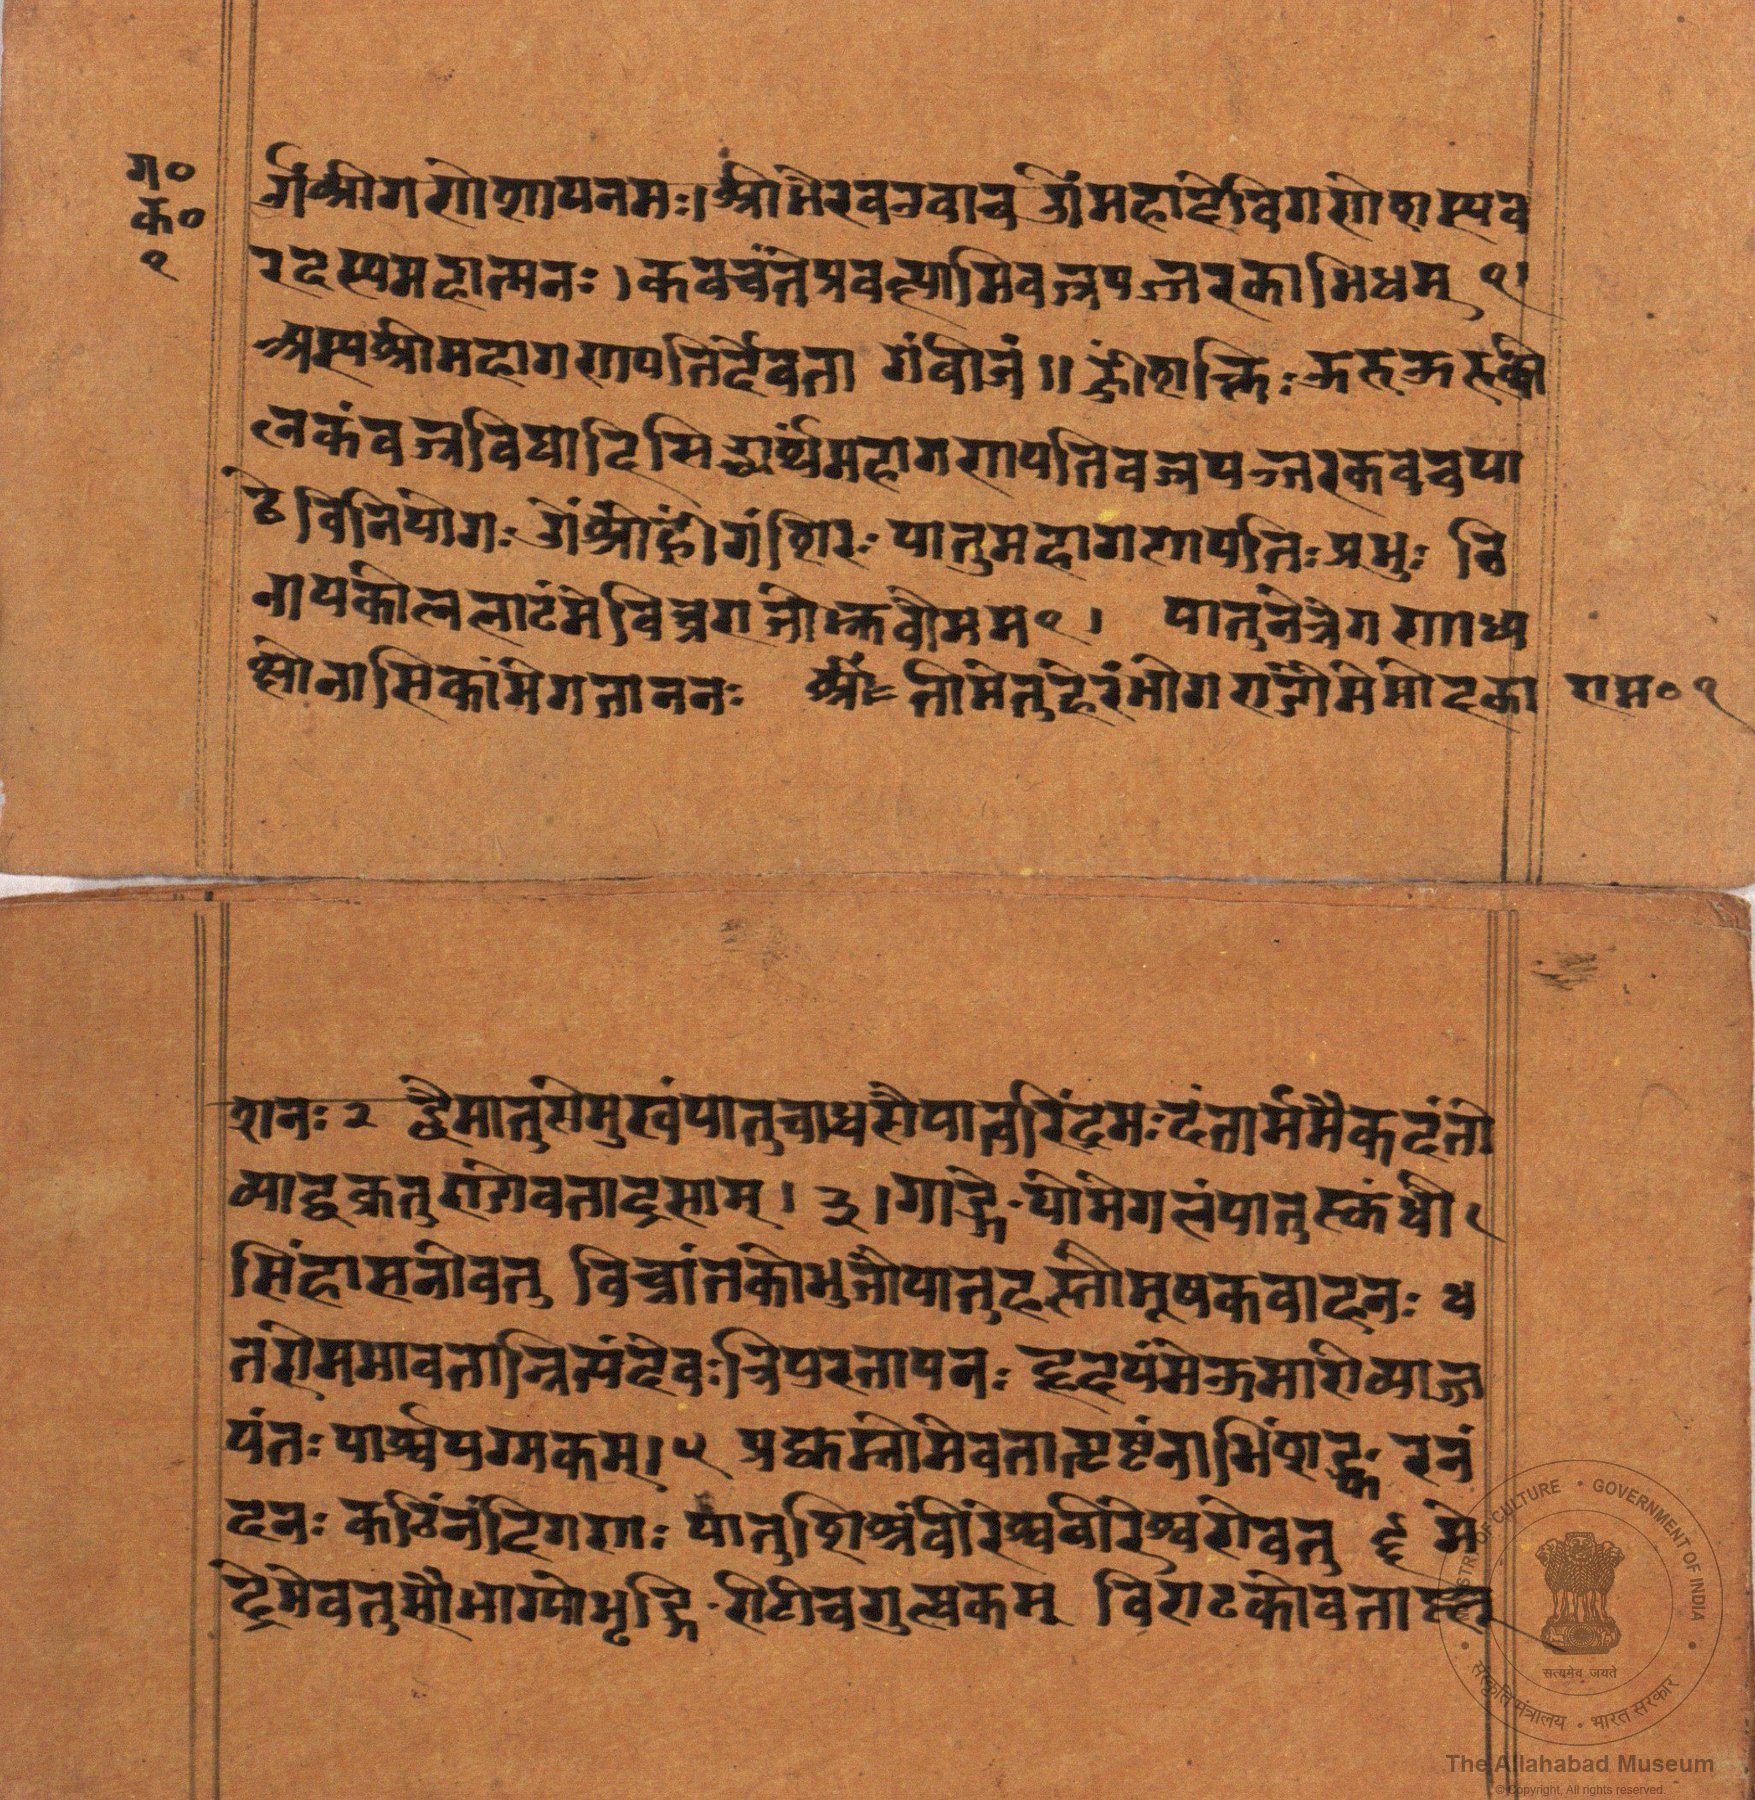 ग॰
क॰
१
ॐ श्रीगणेशायनमः। श्रीभैरवउवाच ॐ महादेविगणेशस्यव
रदस्यमहात्मनः। कवचंतेप्रवक्ष्यामिवज्रपञ्जरकाभिधम् १।
अस्यश्रीमहागणपतिर्देवता गंबीजं॥ ह्रींशक्तिः
लकंवज्रविद्यादिसिद्ध्यर्थंमहागणपतिवज्रपञ्जरकवचपा
ठेविनियोगः ॐ श्रींह्रींगंशिरः पातुमहागणपतिः प्रभुः वि
नायकोललाटंमेविघ्नराजोभ्रुवौमम १। पातुनेत्रेगणाध्य
क्षोनासिकांमेगजाननः तीमेतुहेरंभोगण्डौमेमोदका
राम॰ १
शनः २ द्वैमातुरोमुखंपातुचाधरौपात्वरिंदमः दंतार्ममैकदंतो
व्याद्वक्रतुण्डोवताद्रसाम्। ३। गाङ्गेयोमेगलंपातुस्कंधौ
सिंहासनोवतु विघ्नांतकोभुजौपातुहस्तौमूषकवाहनः ४
ममावतान्नित्यंदेवः त्रिपुरतापनः हृदयंमेकुमारोव्याज्ज
यंतः पार्श्वयुग्मकम्। ५ मेवतात्पृष्टंनाभिंशङ्करनं
दनः कटिंनंदिगणः पातुशिश्नंवीरेश्वरोवतु ६ मे
ढ्रेमेवतुसौभाग्योभृङ्गिरीटीचगुह्यकम् विराटकोवतादूरू
MINISTRY OF CULTURE · GOVERNMENT OF INDIA
सत्यमेव जयते
संस्कृति मंत्रालय · भारत सरकार
The Allahabad Museum
© Copyright, All rights reserved.